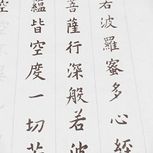 若波羅蜜多心經
菩薩行深般若波
蘊皆空度一切苦